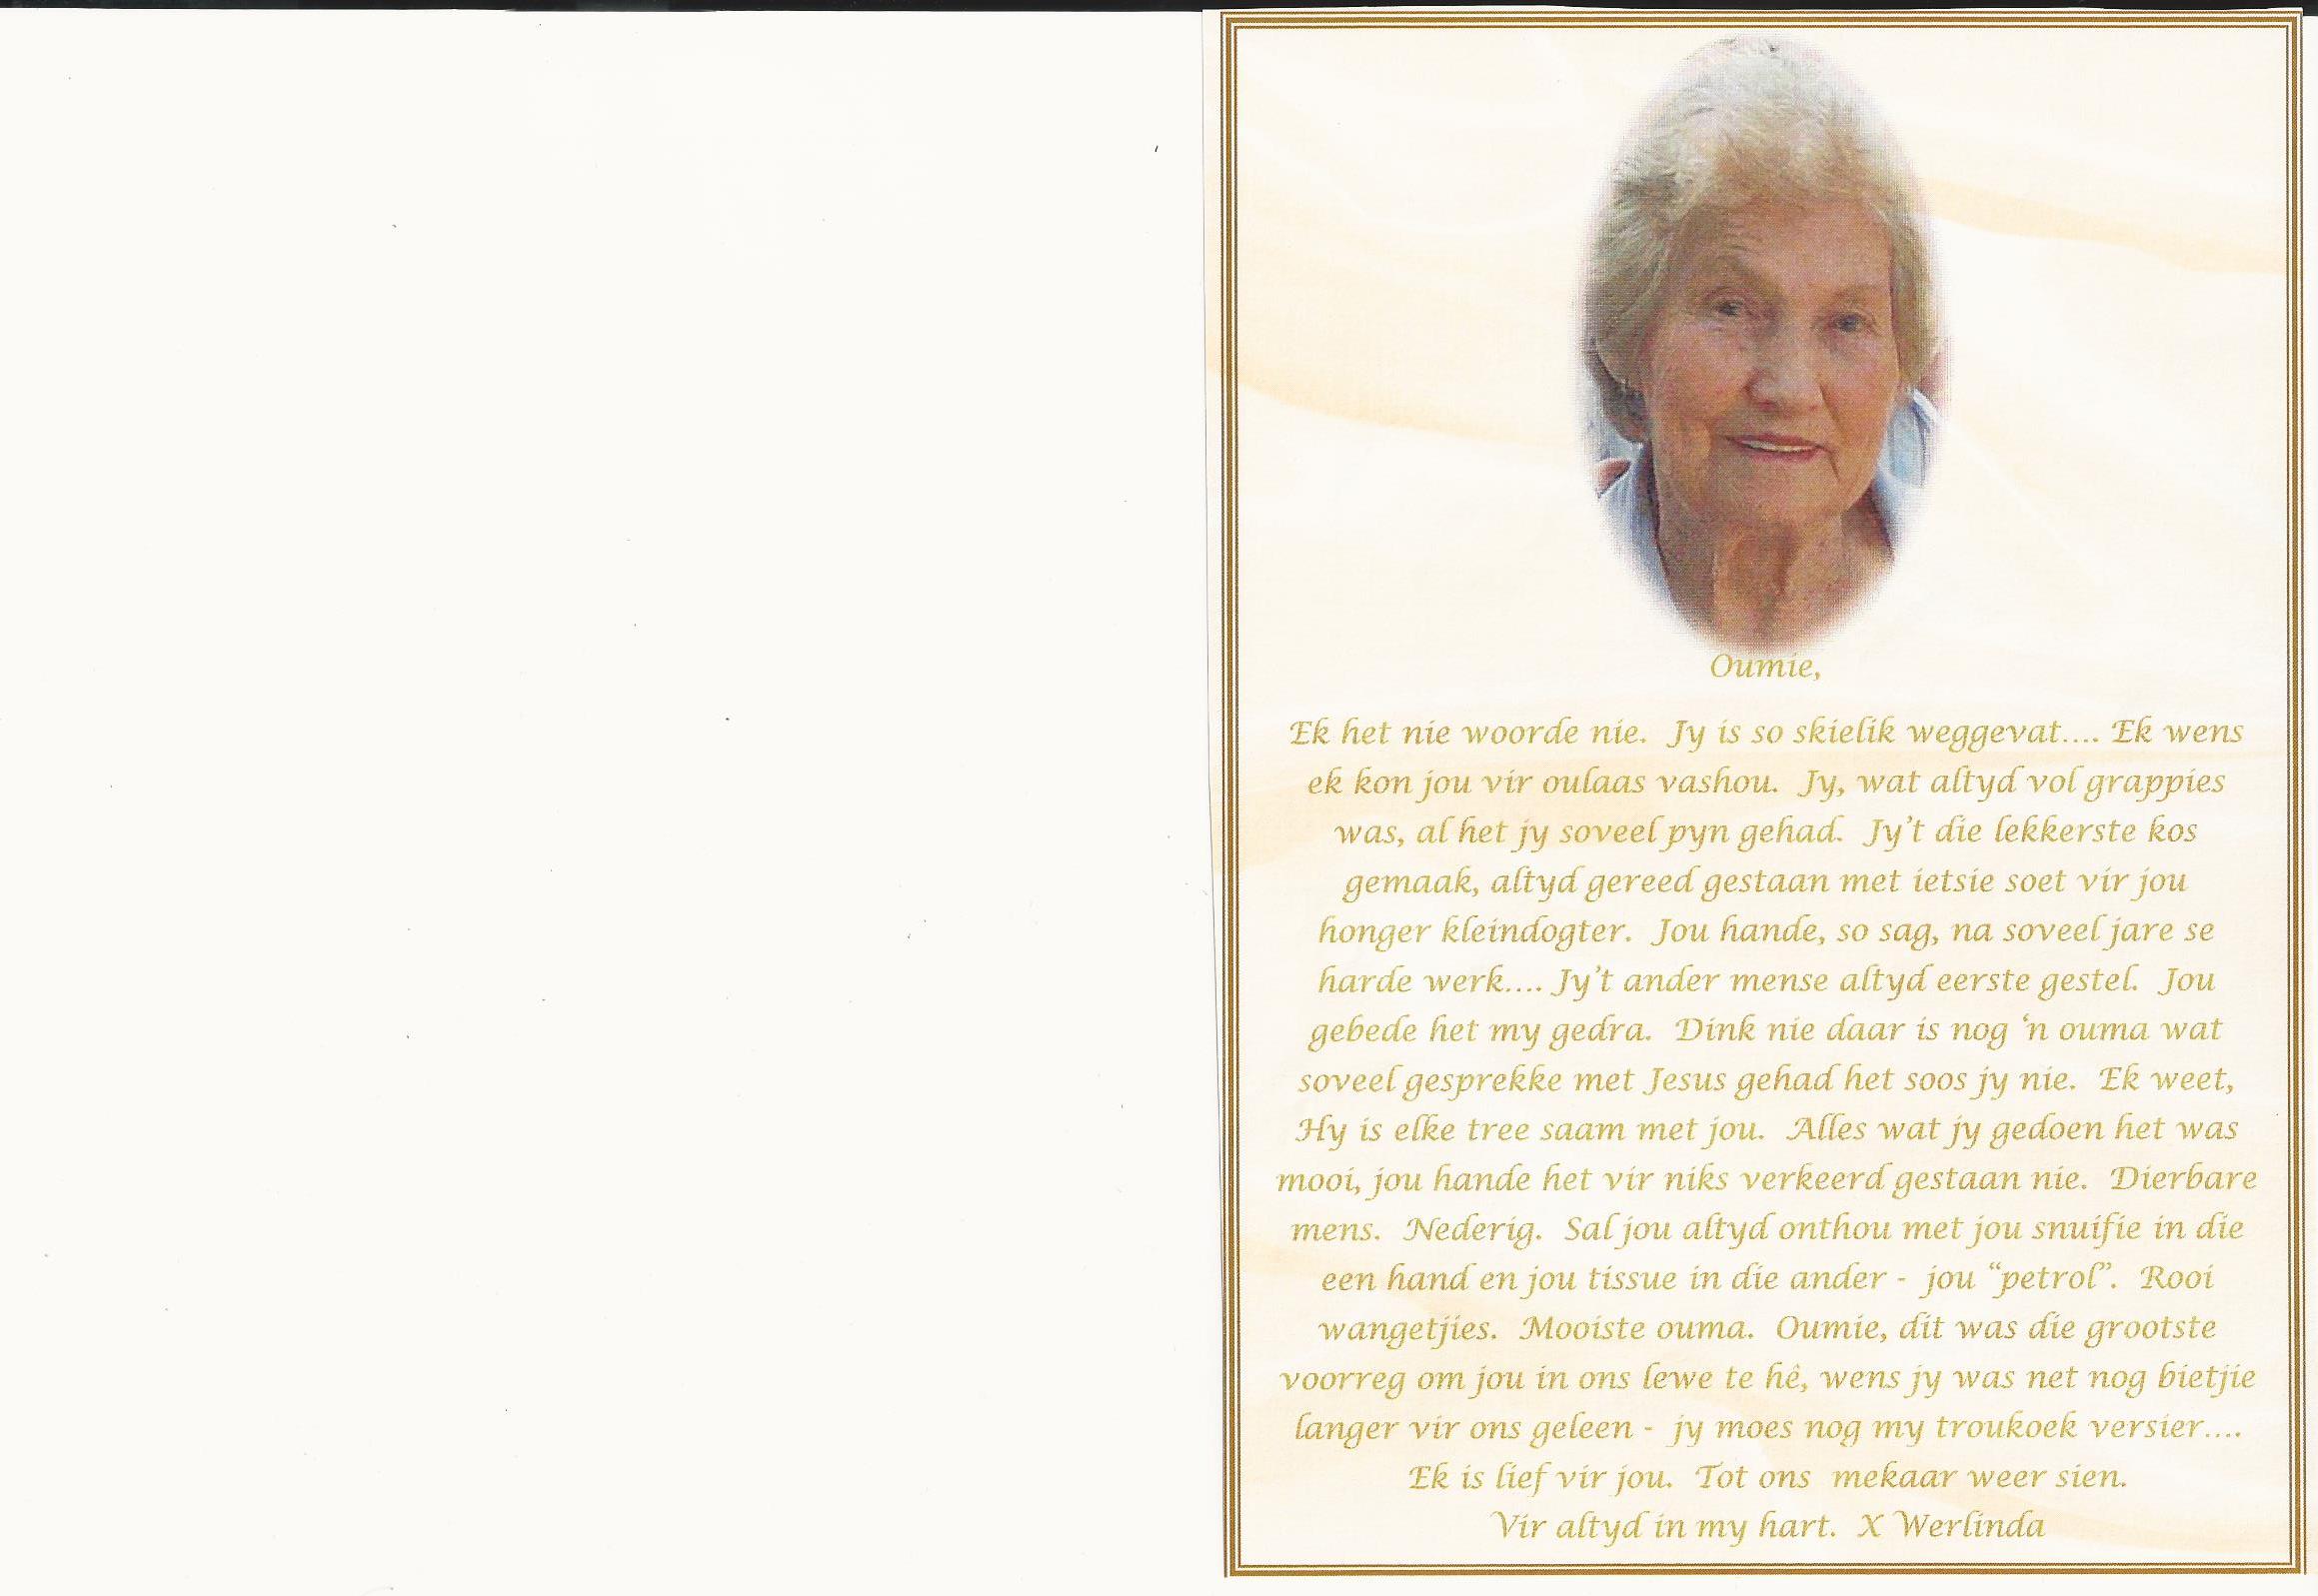 Oumie,
Ek het nie woorde nie. Jy is so skielik weggevat.... Ek wens
ek kon jou vir oulaas vashou. Jy, wat altyd vol grappies
was, al het jy soveel pyn gehad. Jy't die lekkerste kos
gemaak, altyd gereed gestaan met ietsie soet vir jou
honger kleindogter. Jou hande, so sag, na soveel jare se
harde werk.... Jy't ander mense altyd eerste gestel. Jou
gebede het my gedra. Dink nie daar is nog 'n ouma wat
soveel gesprekke met Jesus gehad het soos jy nie. Ek weet,
Hy is elke tree saam met jou. Alles wat jy gedoen het was
mooi, jou hande het vir niks verkeerd gestaan nie. Dierbare
mens. Nederig. Sal jou altyd onthou met jou snuifie in die
een hand en jou tissue in die ander - jou “petrol”. Rooi
wangetjies. Mooiste ouma. Oumie, dit was die grootste
voorreg om jou in ons lewe te hê, wens jy was net nog bietjie
langer vir ons geleen - jy moes nog my troukoek versier....
Ek is lief vir jou. Tot ons mekaar weer sien.
Vir altyd in my hart. X Werlinda